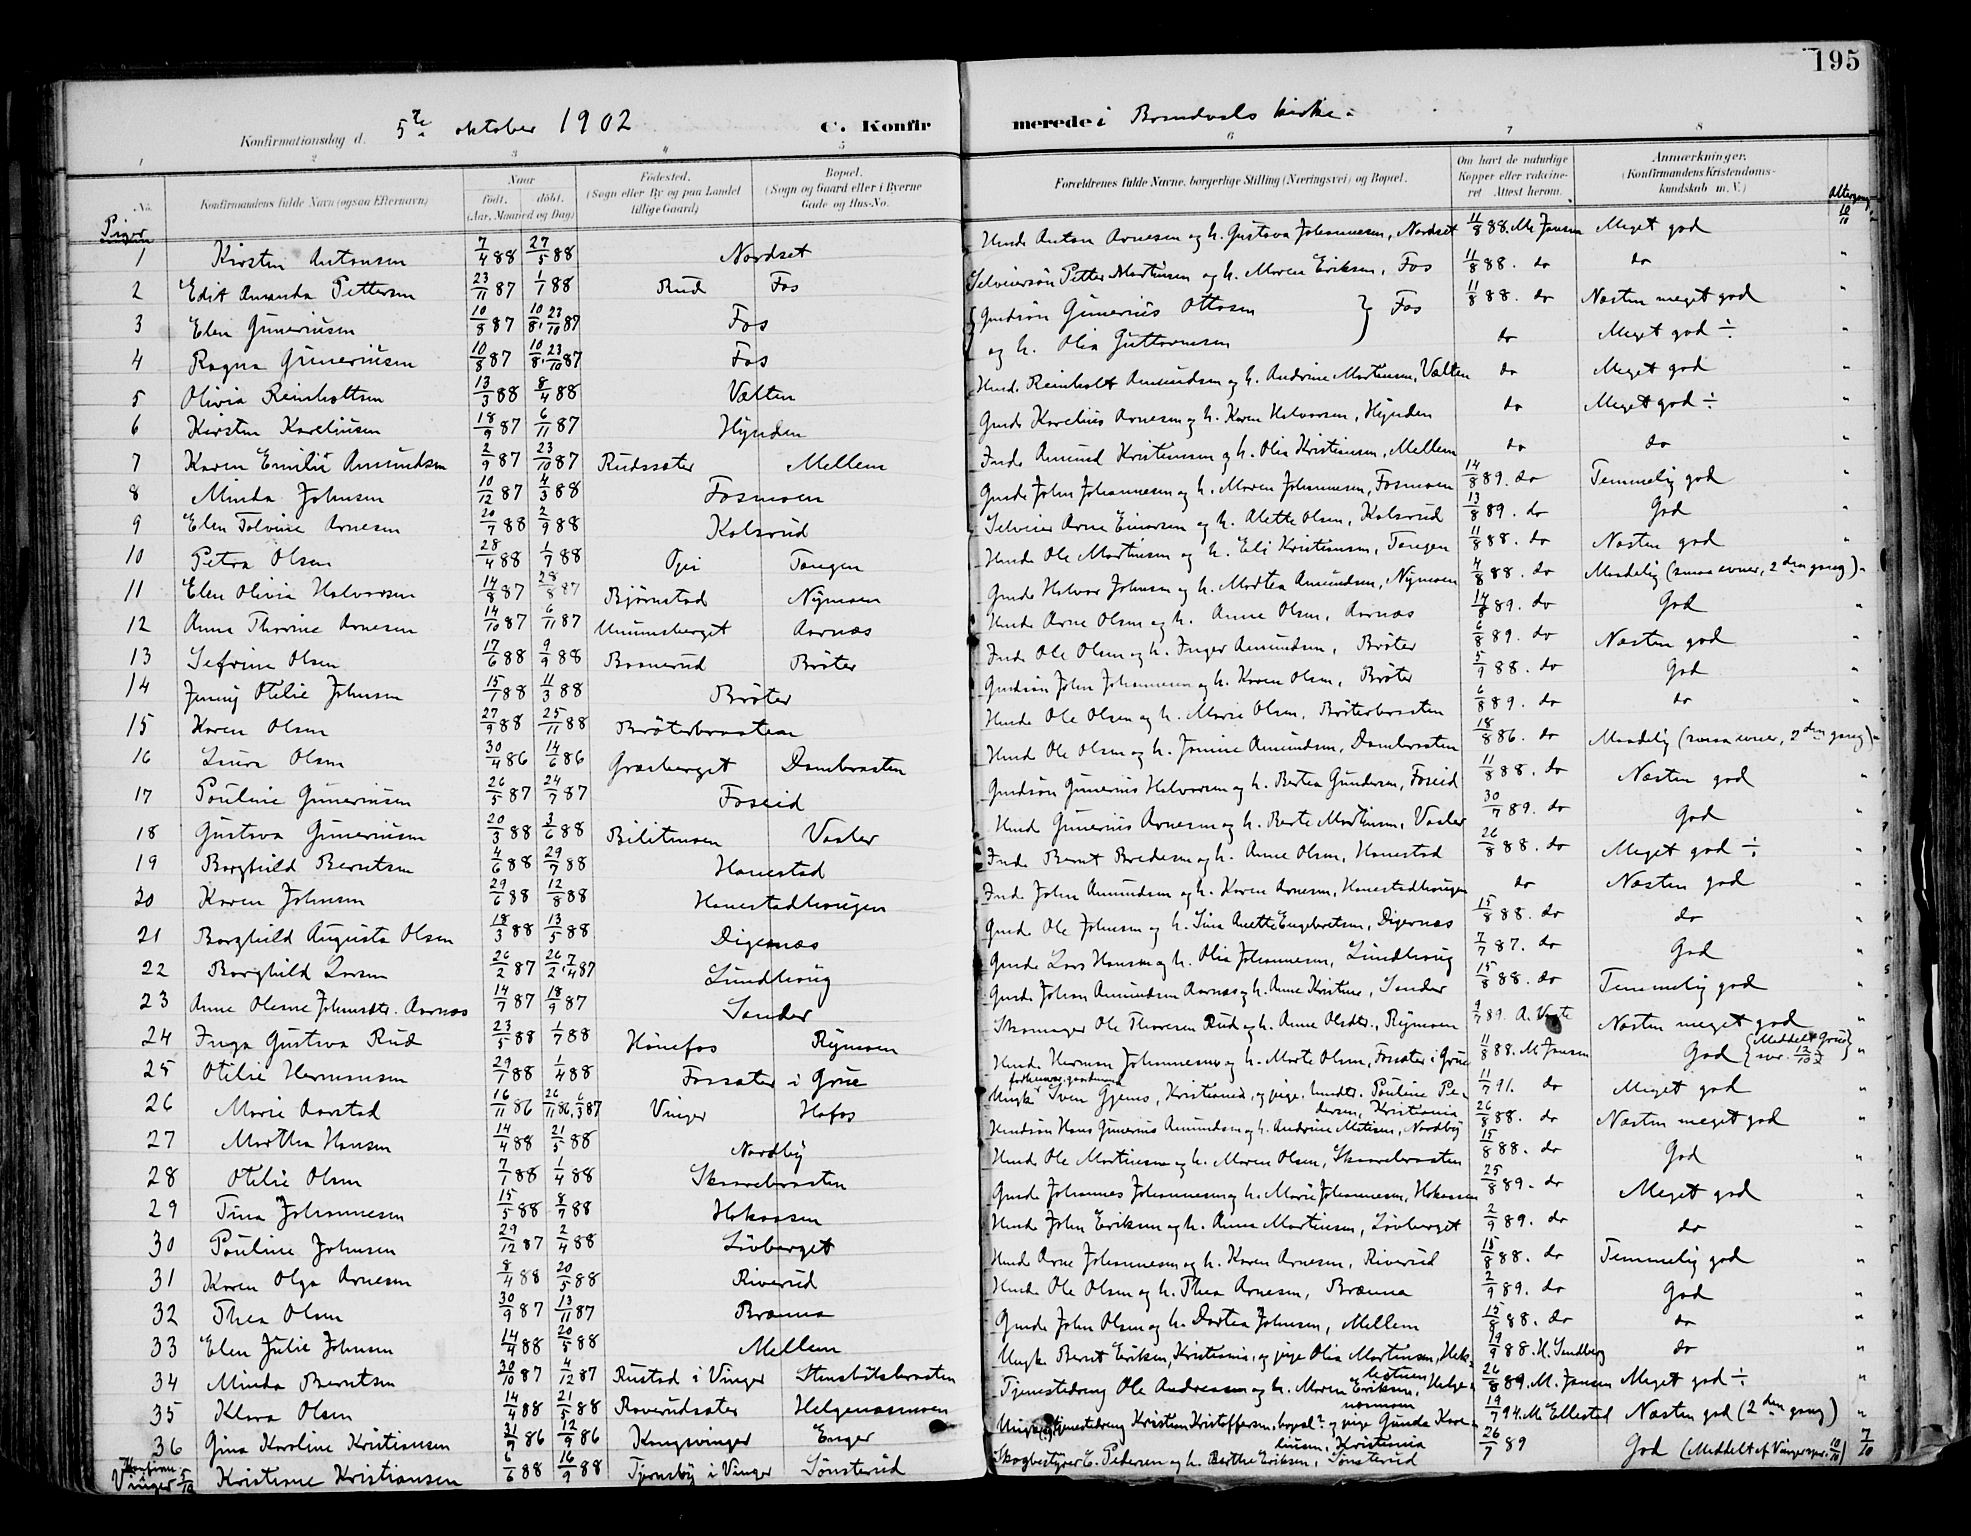 195
Konfirmationsdag d. 5te oktober 1902 C. Konfirmerede i Brandvals kirke.
1 2 3 4 5 6 7 8
No. Konfirmandens fulde Navn (ogsaa Efternavn) Naar født. døbt. (Aar, Maaned og Dag) Fødested. (Sogn eller By og paa Landet tillige Gaard) Bopæl. (Sogn og Gaard eller i Byerne Gade og Hus-No. Forældrenes fulde Navne, borgerlige Stilling (Næringsvei) og Bopæl. Om havt de naturlige Kopper eller vakcineret Attest herom. Anmærkninger. (Konfirmandens Kristendomskundskab m. V.) Altergang
Piger 10/10
1 Kirsten Antonsen 7/4 88 27/5 88 Nordset Husmd. Anton Arnesen og h. Gustava Johannesen, Nordset 11/8 88. M. Jansen Meget god "
2 Edit Amanda Pettersen 23/11 87 1/1 88 Rud Fos Selveiersøn Petter Martinsen og h. Maren Eriksen, Fos 11/8 88. do do "
3 Elen Guneriusen 10/8 87 10/8, 23/10 87 Fos Gmdsøn Gunerius Ottosen } Fos 11/8 88. do Næsten meget god "
4 Ragna Guneriusen 10/8 87 10/8, 23/10 87 Fos og h. Olia Guttormsen do Meget god ÷ "
5 Olivia Reinholtsen 13/3 88 8/4 88 Vælten Husmd. Reinholt Amundsen og h. Andrine Martinsen, Vælten do Meget god "
6 Kirsten Kareliusen 18/9 87 6/11 87 Hynden Gmd. Karelius Arnesen og h. Karen Halvorsen, Hynden do Meget god ÷ "
7 Karen Emilie Amundsen 2/9 87 23/10 87 Rudssæter Mellem Inds. Amund Kristiansen og h. Olia Kristiansen, Mellem do do "
8 Minda Johnsen 10/12 87 4/3 88 Fosmoen Gmd. John Johannesen og h. Maren Johannesen, Fosmoen 14/8 89. do Temmelig god "
9 Elen Tolvine Arnesen 20/7 88 2/9 88 Kolsrud Selveier Arne Einarsen og h. Alette Olsen, Kolsrud 13/8 89. do God "
10 Petra Olsen 28/4 88 1/7 88 Opei Tangen Husmd. Ole Martinsen og h. Eli Kristiansen, Tangen 11/8 88. do Næsten god "
11 Elen Olivia Halvorsen 14/8 87 28/8 87 Bjørnstad Nymoen Gmd. Halvor Johnsen og h. Martea Amundsen, Nymoen 4/8 88. do Maadelig (smaa evner, 2den gang) "
12 Anna Thorine Arnesen 14/10 87 6/11 87 Unumsberget Aarnæs Husmd. Arne Olsen og h. Anne Olsen, Aarnæs 14/8 89. do God "
13 Sefrine Olsen 17/6 88 9/9 88 Basnerud Brøter Inds. Ole Olsen og h. Inger Amundsen, Brøter 6/8 89. do Næsten god "
14 Jenny Otilie Johnsen 15/1 88 11/3 88 Brøter Gmdsøn John Johannesen og h. Karen Olsen, Brøter 5/9 88. do God "
15 Karen Olsen 27/9 88 25/11 88 Brøterbraaten Husmd. Ole Olsen og h. Marie Olsen, Brøterbraaten 6/8 89. do do "
16 Laura Olsen 30/4 86 14/6 86 Græsberget Dambraaten Husmd. Ole Olsen og h. Jonine Amundsen, Dambraaten 18/8 86. do Maadelig (smaa evner, 2den gang) "
17 Pauline Guneriusen 26/5 87 24/7 87 Foseid Gmdsøn Gunerius Halvorsen og h. Bertea Gundersen, Foseid 11/8 88. do Næsten god "
18 Gustava Guneriusen 20/3 88 3/6 88 Bilitmoen Vasler Husmd. Gunerius Arnesen og h. Berte Martinsen, Vasler 30/7 89. do God "
19 Borghild Berntsen 4/6 88 29/7 88 Hanestad Inds. Bernt Bredesen og h. Anne Olsen, Hanestad 26/8 88. do Meget god ÷ "
20 Karen Johnsen 29/6 88 12/8 88 Hanestadhaugen Inds. John Amundsen og h. Karen Arnesen, Hanestadhaugen do Næsten god "
21 Borghild Augusta Olsen 18/3 88 13/5 88 Digernæs Gmd. Ole Johnsen og h. Lina Anette Engebretsen, Digernæs 15/8 88. do do "
22 Borghild Larsen 26/2 87 26/2, 7/4 87 Lundhaug Gmd. Lars Hansen og h. Olia Johannesen, Lundhaug 7/7 87. do God "
23 Anne Olesine Johansdtr. Aarnæs 14/7 87 18/9 87 Sander Gmd. Johan Amundsen Aarnæs og h. Anne Kristine, Sander 15/8 88. do Temmelig god "
24 Inga Gustava Rud 23/5 88 1/7 88 Hønefos Rymoen Skomager Ole Thoresen Rud og h. Anne Olsdtr., Rymoen 9/7 89. Næsten meget god "
25 Otilie Hermansen 29/1 88 1/4 88 Fossæter i Grue Husmd. Herman Johannesen og h. Marte Olsen, Fossæter i Grue 11/8 88. M. Jansen God (Meddelt Grue spr. 12/10) "
26 Marie Aarstad 16/11 86 26/11 86, 6/3 87 Vinger Hafos Ungk. Sven Gjems, Kristiania, og pige, Pauline Pedersen, Kristiania 11/7 91. do Meget god "
27 Martha Hansen 14/4 88 21/5 88 Nordby Husmdsøn Hans Gunerius Amundsen og h. Andrine Matisen, Nordby 26/8 88. do Næsten meget god "
28 Otilie Olsen 7/1 88 1/4 88 Skaarebraaten Husmd. Ole Martinsen og h. Maren Olsen, Skaarebraaten 15/8 88. do God "
29 Tina Johannesen 15/5 88 8/7 88 Hokaasen Gmd. Johannes Johannesen og h. Marie Johannesen, Hokaasen 25/8 89. do Meget god "
30 Pauline Johnsen 29/12 87 2/4 88 Løvberget Husmd. John Eriksen og h. Anna Martinsen, Løvberget 2/9 89. do do "
31 Karen Olga Arnesen 8/4 88 20/5 88 Riverud Husmd. Arne Johannesen og h. Karen Arnesen, Riverud 15/8 88. do Temmelig god "
32 Thea Olsen 30/9 87 13/11 87 Brænna Husmd. Ole Olsen og h. Thea Arnesen, Brænna 2/9 89. do God "
33 Elen Julie Johnsen 14/4 88 20/5 88 Mellem Gmd. John Olsen og h. Dortea Johnsen, Mellem 15/8 88. do do "
34 Minda Berntsen 30/10 87 4/12 87 Rustad i Vinger Stensbølsbraaten Ungk. Bernt Eriksen, Kristiania, og pige Olia Martinsen, 19/9 88. H. Sandberg do "
35 Klara Olsen 14/4 88 21/5 88 Raverudsæter Helgenæsmoen Tjenestedreng Ole Andreassen og h. Maren Eriksen, Helgenæsmoen 26/8 89. M. Jansen Meget god ÷ "
36 Gina Karoline Kristiansen 31/9 86 12/9 86 Kongsvinger Enger Ungk. tjenestedreng Kristian Kristoffersen, bopæl? og pige Gunda Kareliusen, Kristiania 19/7 94. M. Ellestad Næsten god (2den gang) "
Konfirm. Vinger 5/10 Kristiane Kristiansen 6/6 88 16/9 88 Tjernsby i Vinger Sønsterud Skogbestyrer C. Pedersen og h. Berthe Eriksen, Sønsterud 26/7 89 God (Meddelt af Vinger spr. 10/10) 7/10